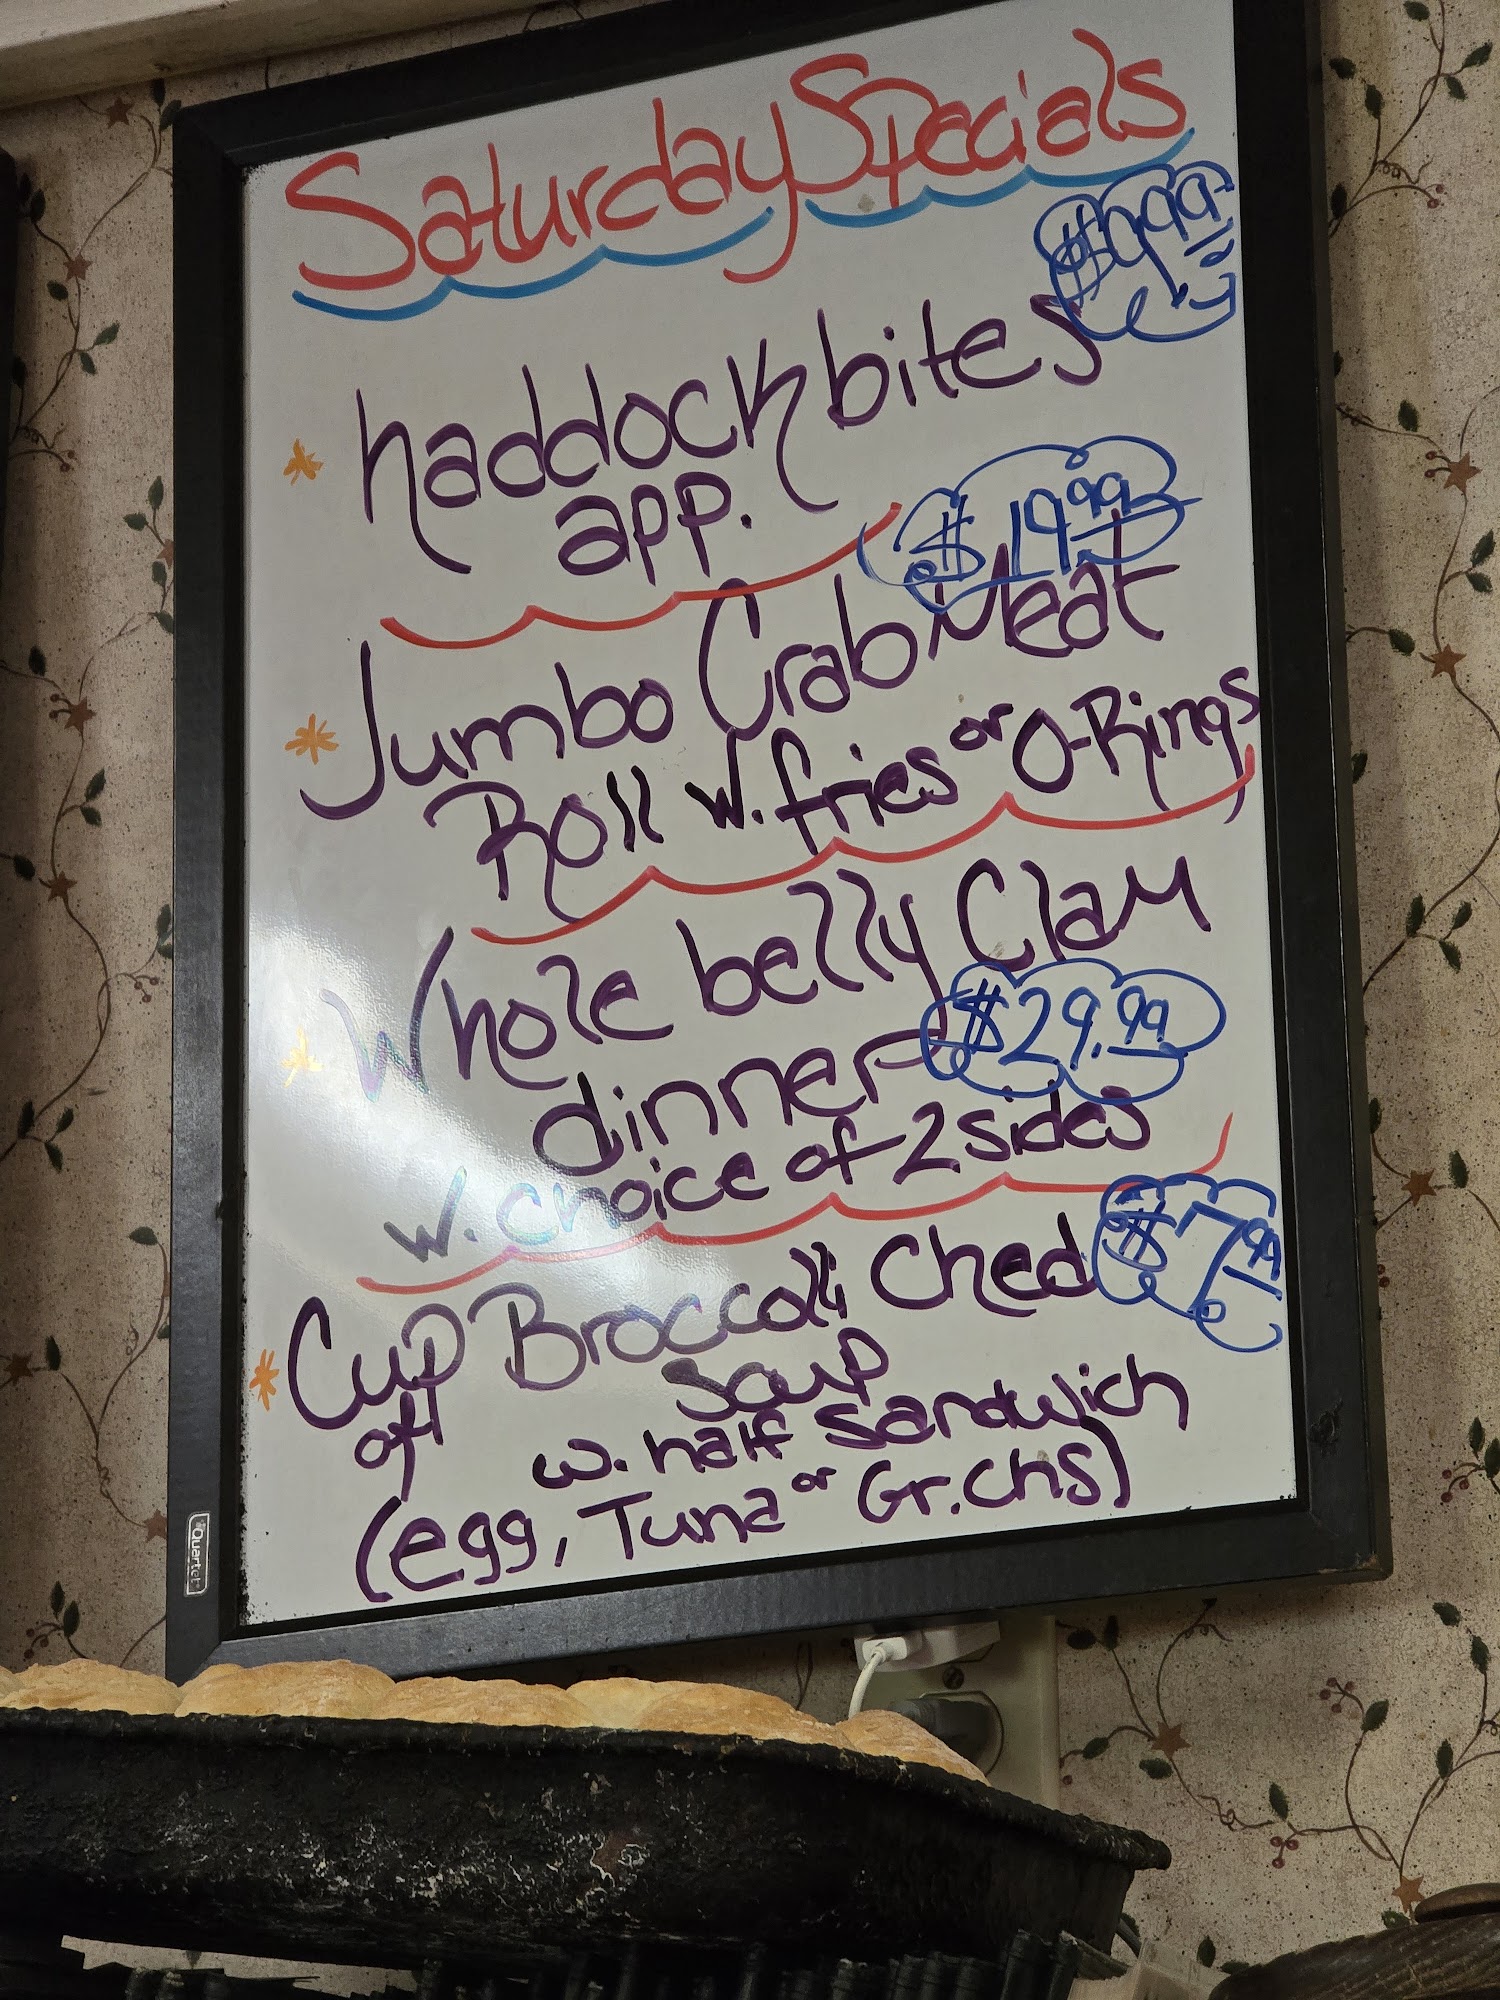 Saturday Specials
$9.99
haddock bites
app.
$19.99
Jumbo Crab Meat
Roll w. fries or O-Rings
Whole belly Clam
dinner $29.99
w. choice of 2 sides
Cup Broccolli Ched $7.99
of Soup
w. half Sandwich
(egg, Tuna or Gr. chs)
Quartet